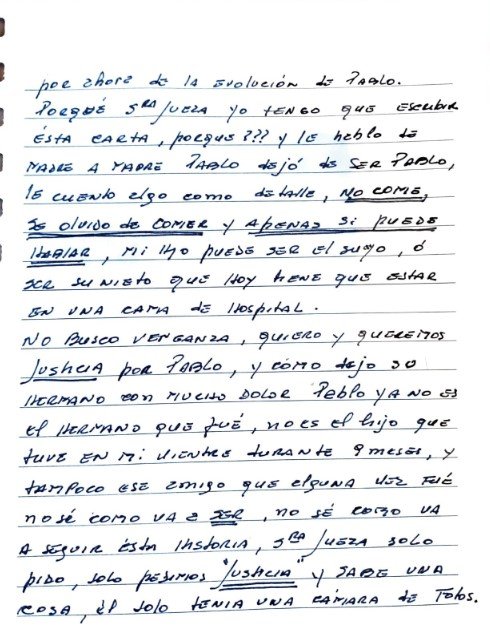 por ahora de la evolución de Pablo.
Porqué Sra Jueza yo tengo que escribir
ésta carta, porque??? y le hablo de
madre a madre Pablo dejó de ser Pablo,
le cuento algo como detalle, no come,
se olvido de comer y apenas si puede
hablar, mi hijo puede ser el suyo, ó
ser su nieto que hoy tiene que estar
en una cama de hospital.
No busco venganza, quiero y queremos
Justicia por Pablo, y cómo dijo su
hermano con mucho dolor Pablo ya no es
el hermano que fué, no es el hijo que
tuve en mi vientre durante 9 meses, y
tampoco ese amigo que alguna vez fué
no sé como va a ser, no sé como va
a seguir ésta historia, Sra Jueza solo
pido, solo pedimos "Justicia" y sabe una
cosa, él solo tenia una cámara de fotos.